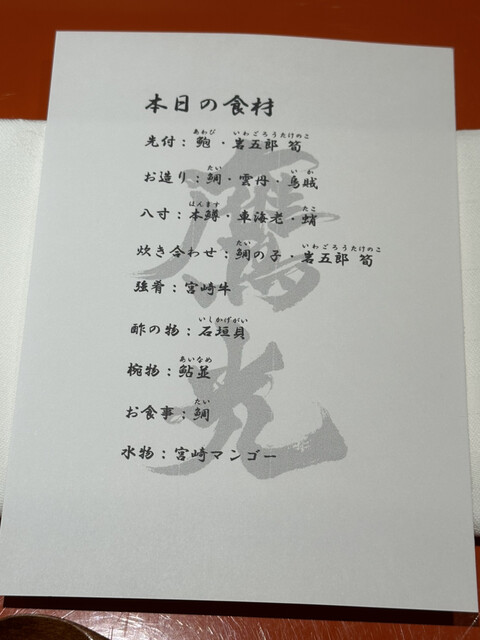 本日の食材
あわび いわごろうたけのこ
先付：鮑・岩五郎 筍
たい いか
お造り：鯛・雲丹・烏賊
ほんます たこ
八寸：本鱒・車海老・蛸
たい いわごろうたけのこ
炊き合わせ：鯛の子・岩五郎 筍
強肴：宮崎牛
いしかげがい
酢の物：石垣貝
あいなめ
椀物：鮎並
たい
お食事：鯛
水物：宮崎マンゴー
鷹光